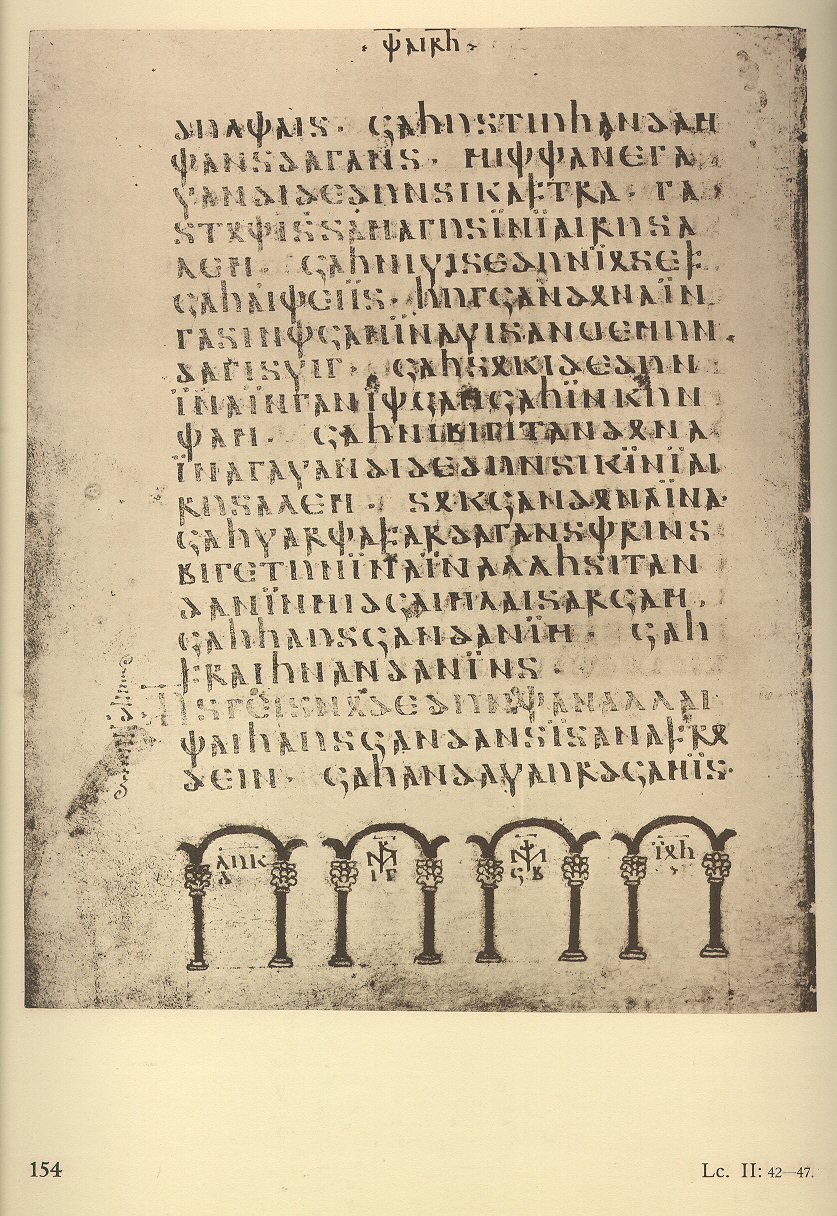 · 𐌸𐌰𐌹𐍂𐌷 ·
𐌳𐌿𐌻𐌸𐌰𐌹𐍃 · 𐌾𐌰𐌷𐌿𐍃𐍄𐌹𐌿𐌷𐌰𐌽𐌳𐌰𐌼
𐌸𐌰𐌽𐍃𐌳𐌰𐌲𐌰𐌽𐍃 · 𐌼𐌹𐌸𐌸𐌰𐌽𐌴𐌲𐌰
𐍅𐌰𐌽𐌳𐌹𐌳𐌴𐌳𐌿𐌽𐍃𐌹𐌺𐌰𐍆𐍄𐍂𐌰 · 𐌲𐌰
𐍃𐍄𐍉𐌸𐌹̈𐍃𐍃𐌰𐌼𐌰𐌲𐌿𐍃𐌹̈𐌽𐌹̈𐌰𐌹𐍂𐌿𐍃𐌰
𐌻𐌴𐌼 · 𐌾𐌰𐌷𐌽𐌹𐍅𐌹𐍃𐍃𐌴𐌳𐌿𐌽𐌹̈𐍉𐍃𐌴𐍆
𐌾𐌰𐌷𐌰𐌹𐌸𐌴𐌹𐌹̈𐍃 · 𐌷𐌿𐌲𐌾𐌰𐌽𐌳𐍉𐌽𐌰𐌹̈𐌽
𐌲𐌰𐍃𐌹𐌽𐌸𐌾𐌰𐌼𐌹̈𐌽𐌰𐍅𐌹𐍃𐌰𐌽𐌵𐌴𐌼𐌿𐌽 ·
𐌳𐌰𐌲𐌹𐍃𐍅𐌹𐌲 · 𐌾𐌰𐌷𐍃𐍉𐌺𐌹𐌳𐌴𐌳𐌿𐌽
𐌹̈𐌽𐌰𐌹̈𐌽𐌲𐌰𐌽𐌹𐌸𐌾𐌰𐌼𐌾𐌰𐌷𐌹̈𐌽𐌺𐌿𐌽
𐌸𐌰𐌼 · 𐌾𐌰𐌷𐌽𐌹𐌱𐌹𐌲𐌹𐍄𐌰𐌽𐌳𐍉𐌽𐌰
𐌹̈𐌽𐌰𐌲𐌰𐍅𐌰𐌽𐌳𐌹𐌳𐌴𐌳𐌿𐌽𐍃𐌹𐌺𐌹̈𐌽𐌹̈𐌰𐌹
𐍂𐌿𐍃𐌰𐌻𐌴𐌼 · 𐍃𐍉𐌺𐌾𐌰𐌽𐌳𐍉𐌽𐌰𐌹̈𐌽𐌰 ·
𐌾𐌰𐌷𐍅𐌰𐍂𐌸𐌰𐍆𐌰𐍂𐌳𐌰𐌲𐌰𐌽𐍃𐌸𐍂𐌹𐌽𐍃
𐌱𐌹𐌲𐌴𐍄𐌿𐌽𐌹̈𐌽𐌰𐌹̈𐌽𐌰𐌻𐌷𐍃𐌹𐍄𐌰𐌽
𐌳𐌰𐌽𐌹̈𐌽𐌼𐌹𐌳𐌾𐌰𐌹𐌼𐌻𐌰𐌹𐍃𐌰𐍂𐌾𐌰𐌼 ·
𐌾𐌰𐌷𐌷𐌰𐌿𐍃𐌾𐌰𐌽𐌳𐌰𐌽𐌹̈𐌼 · 𐌾𐌰𐌷
𐍆𐍂𐌰𐌹𐌷𐌽𐌰𐌽𐌳𐌰𐌽𐌹̈𐌽𐍃 ·
𐌿𐍃𐌲𐌴𐌹𐍃𐌽𐍉𐌳𐌴𐌳𐌿𐌽𐌸𐌰𐌽𐌰𐌻𐌻𐌰𐌹
𐌸𐌰𐌹𐌷𐌰𐌿𐍃𐌾𐌰𐌽𐌳𐌰𐌽𐍃𐌹̈𐍃𐌰𐌽𐌰𐍆𐍂𐍉
𐌳𐌴𐌹𐌽 · 𐌾𐌰𐌷𐌰𐌽𐌳𐌰𐍅𐌰𐌿𐍂𐌳𐌾𐌰𐌼𐌹̈𐍃 ·
𐌻𐌿𐌺 𐌹̈𐍉𐌷
154 Lc. II: 42—47.